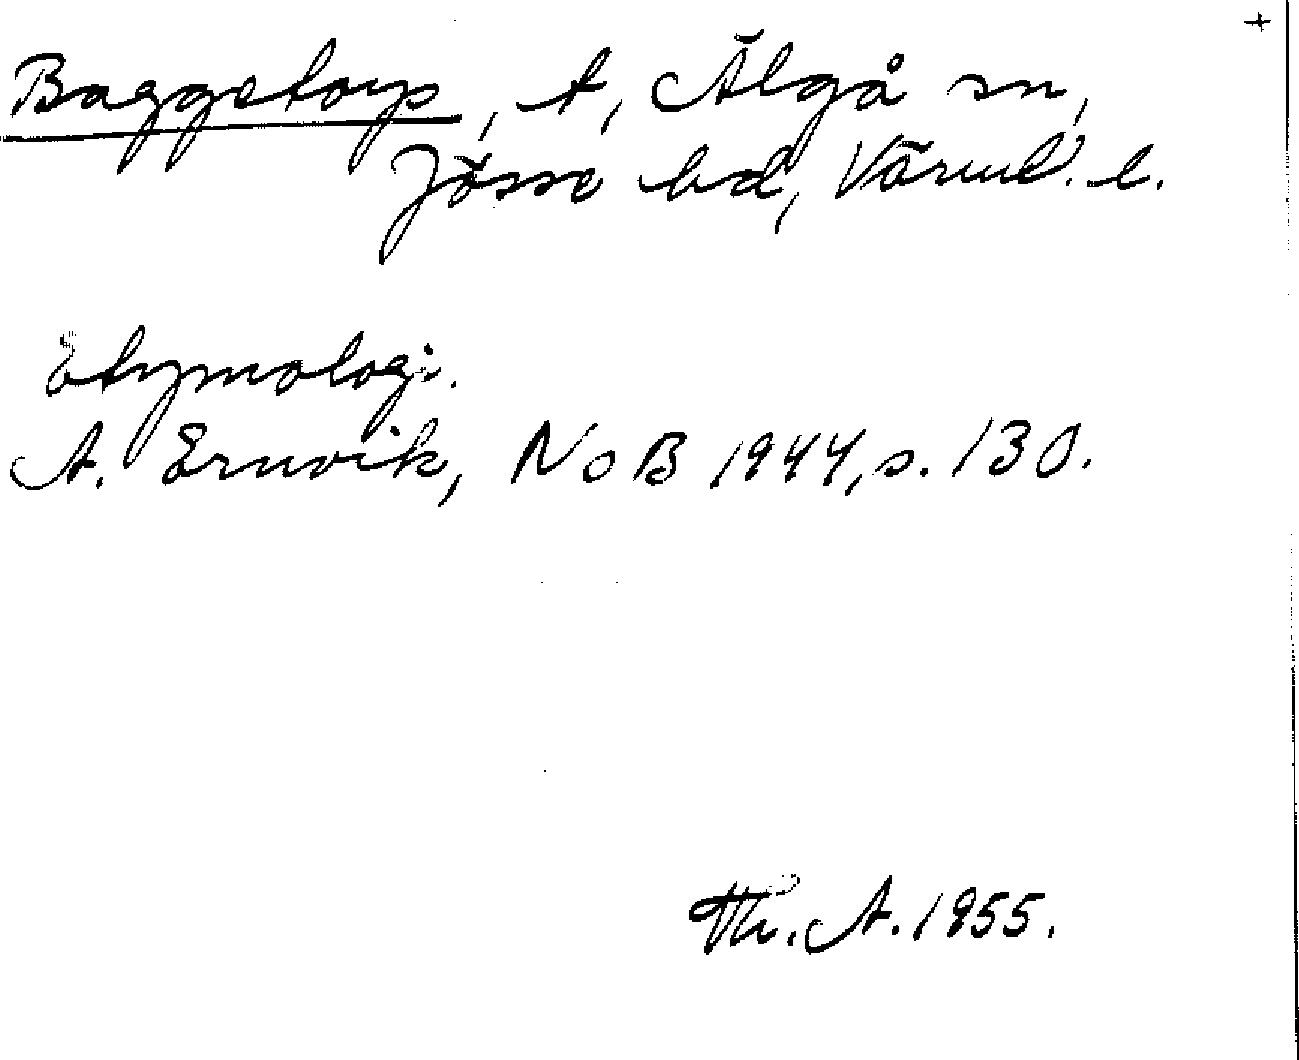 +
Baggetorp, t, Älgå sn,
Jösse hd, Värml. l.
Etymologi.
A. Ernvik, NoB 1944, s. 130.
Th. A. 1955.